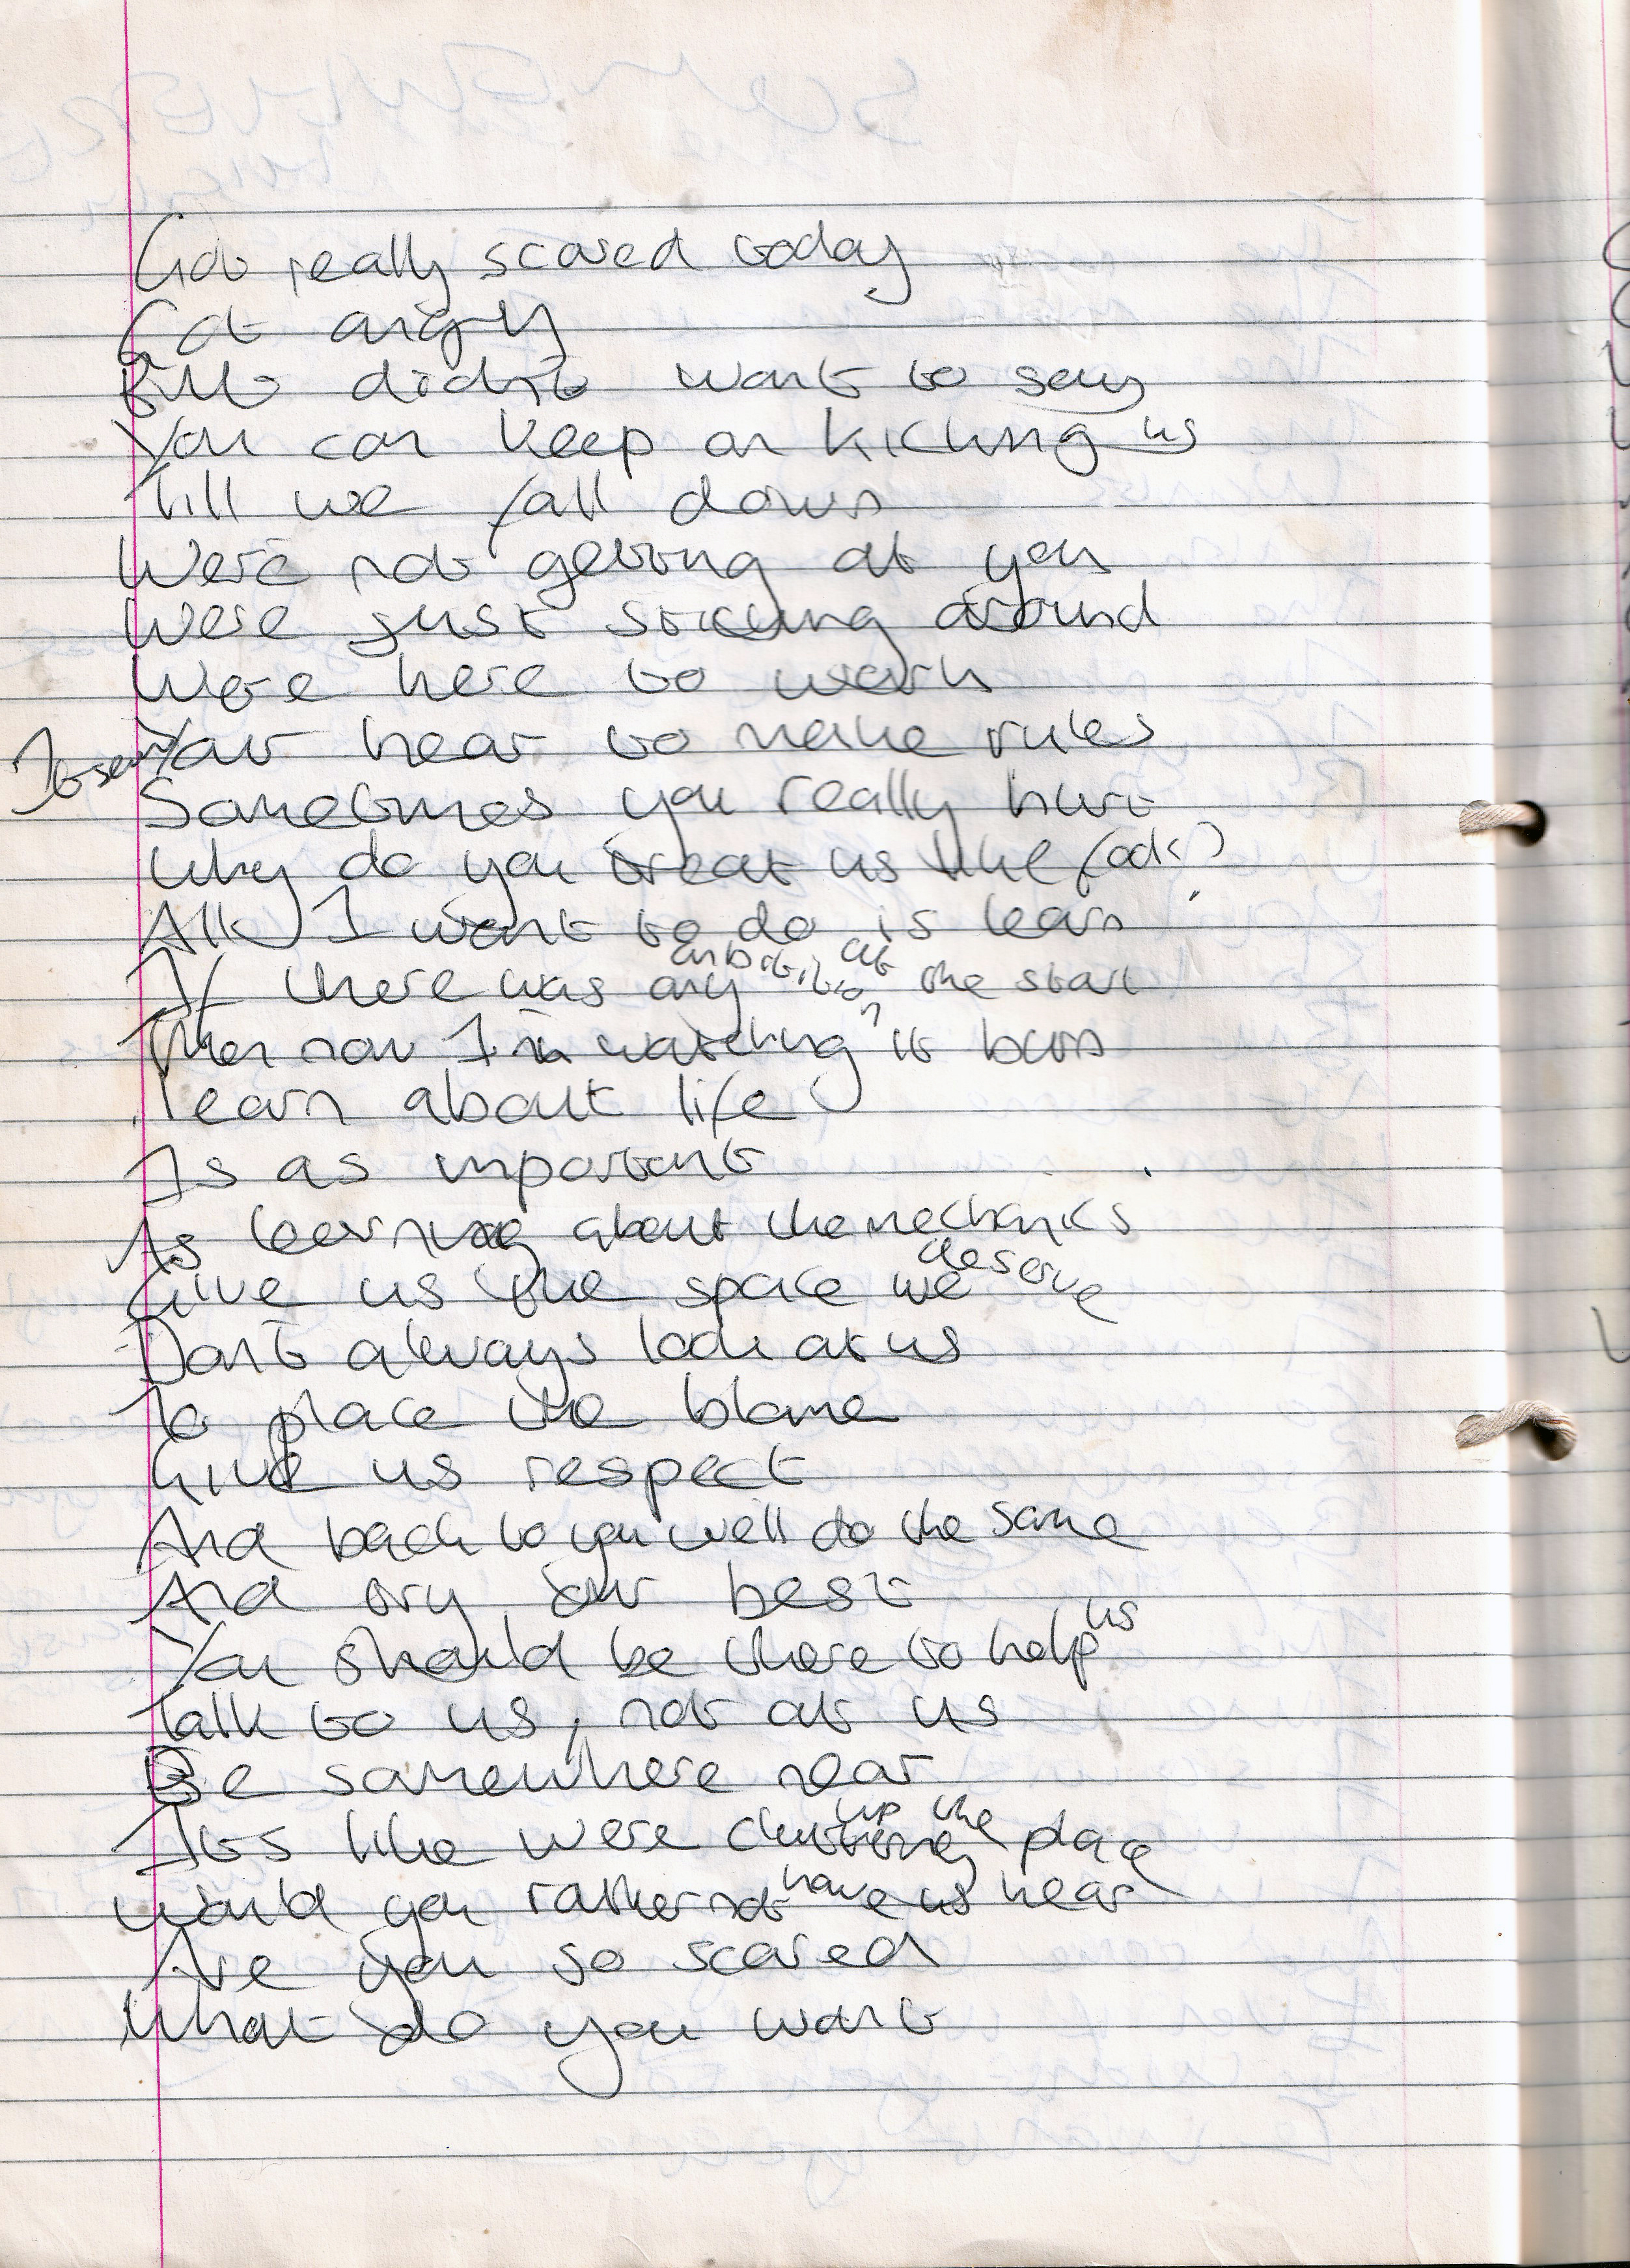 Got really scared today
Got angry
But didn't want to say
You can keep on kicking us
Till we fall down
We're not getting at you
Were just sticking around
Were here to work
Your hear to make rules
Sometimes you really hurt
Why do you treat us like fools?
All I want to do is learn
If there was any ambition at the start
Then now I'm watching it burn
learn about life
Is as important
As learning about the mechanics
Give us the space we deserve
Don't always look at us
To place the blame
Give us respect
And back to you we'll do the same
And try our best
You should be there to help us
Talk to us, not at us
Be somewhere near
Its like were cluttering up the place
Would you rather not have us near
Are you so scared
What do you want